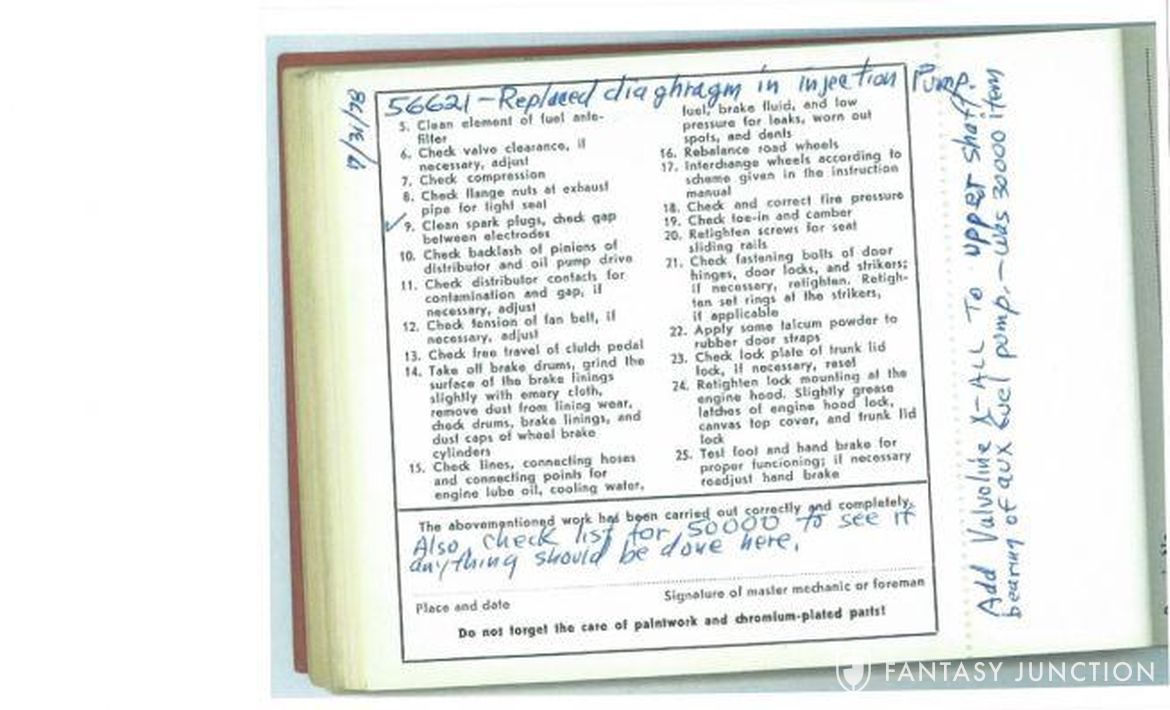 56621 - Replaced diaphragm in injection Pump.
5. Clean element of fuel ante-
filter
6. Check valve clearance, if
necessary, adjust
7. Check compression
8. Check flange nuts at exhaust
pipe for tight seat
9. Clean spark plugs, check gap
between electrodes
10. Check backlash of pinions of
distributor and oil pump drive
11. Check distributor contacts for
contamination and gap, if
necessary, adjust
12. Check tension of fan belt, if
necessary, adjust
13. Check free travel of clutch pedal
14. Take off brake drums, grind the
surface of the brake linings
slightly with emery cloth,
remove dust from lining wear,
check drums, brake linings, and
dust caps of wheel brake
cylinders
15. Check lines, connecting hoses
and connecting points for
engine lube oil, cooling water,
fuel, brake fluid, and low
pressure for leaks, worn out
spots, and dents
16. Rebalance road wheels
17. Interchange wheels according to
scheme given in the instruction
manual
18. Check and correct tire pressure
19. Check toe-in and camber
20. Retighten screws for seat
sliding rails
21. Check fastening bolts of door
hinges, door locks, and strikers;
if necessary, retighten. Retigh-
ten set rings at the strikers,
if applicable
22. Apply some talcum powder to
rubber door straps
23. Check lock plate of trunk lid
lock, if necessary, reset
24. Retighten lock mounting at the
engine hood. Slightly grease
latches of engine hood lock,
canvas top cover, and trunk lid
lock
25. Test foot and hand brake for
proper funcioning; if necessary
readjust hand brake
The abovementioned work has been carried out correctly and completely.
Also, check list for 50000 to see if
anything should be done here.
Place and date
Signature of master mechanic or foreman
Do not forget the care of paintwork and chromium-plated parts!
Add Valvoline X-ALL To upper shaft
bearing of aux fuel pump. - Was 30000 item
FANTASY JUNCTION